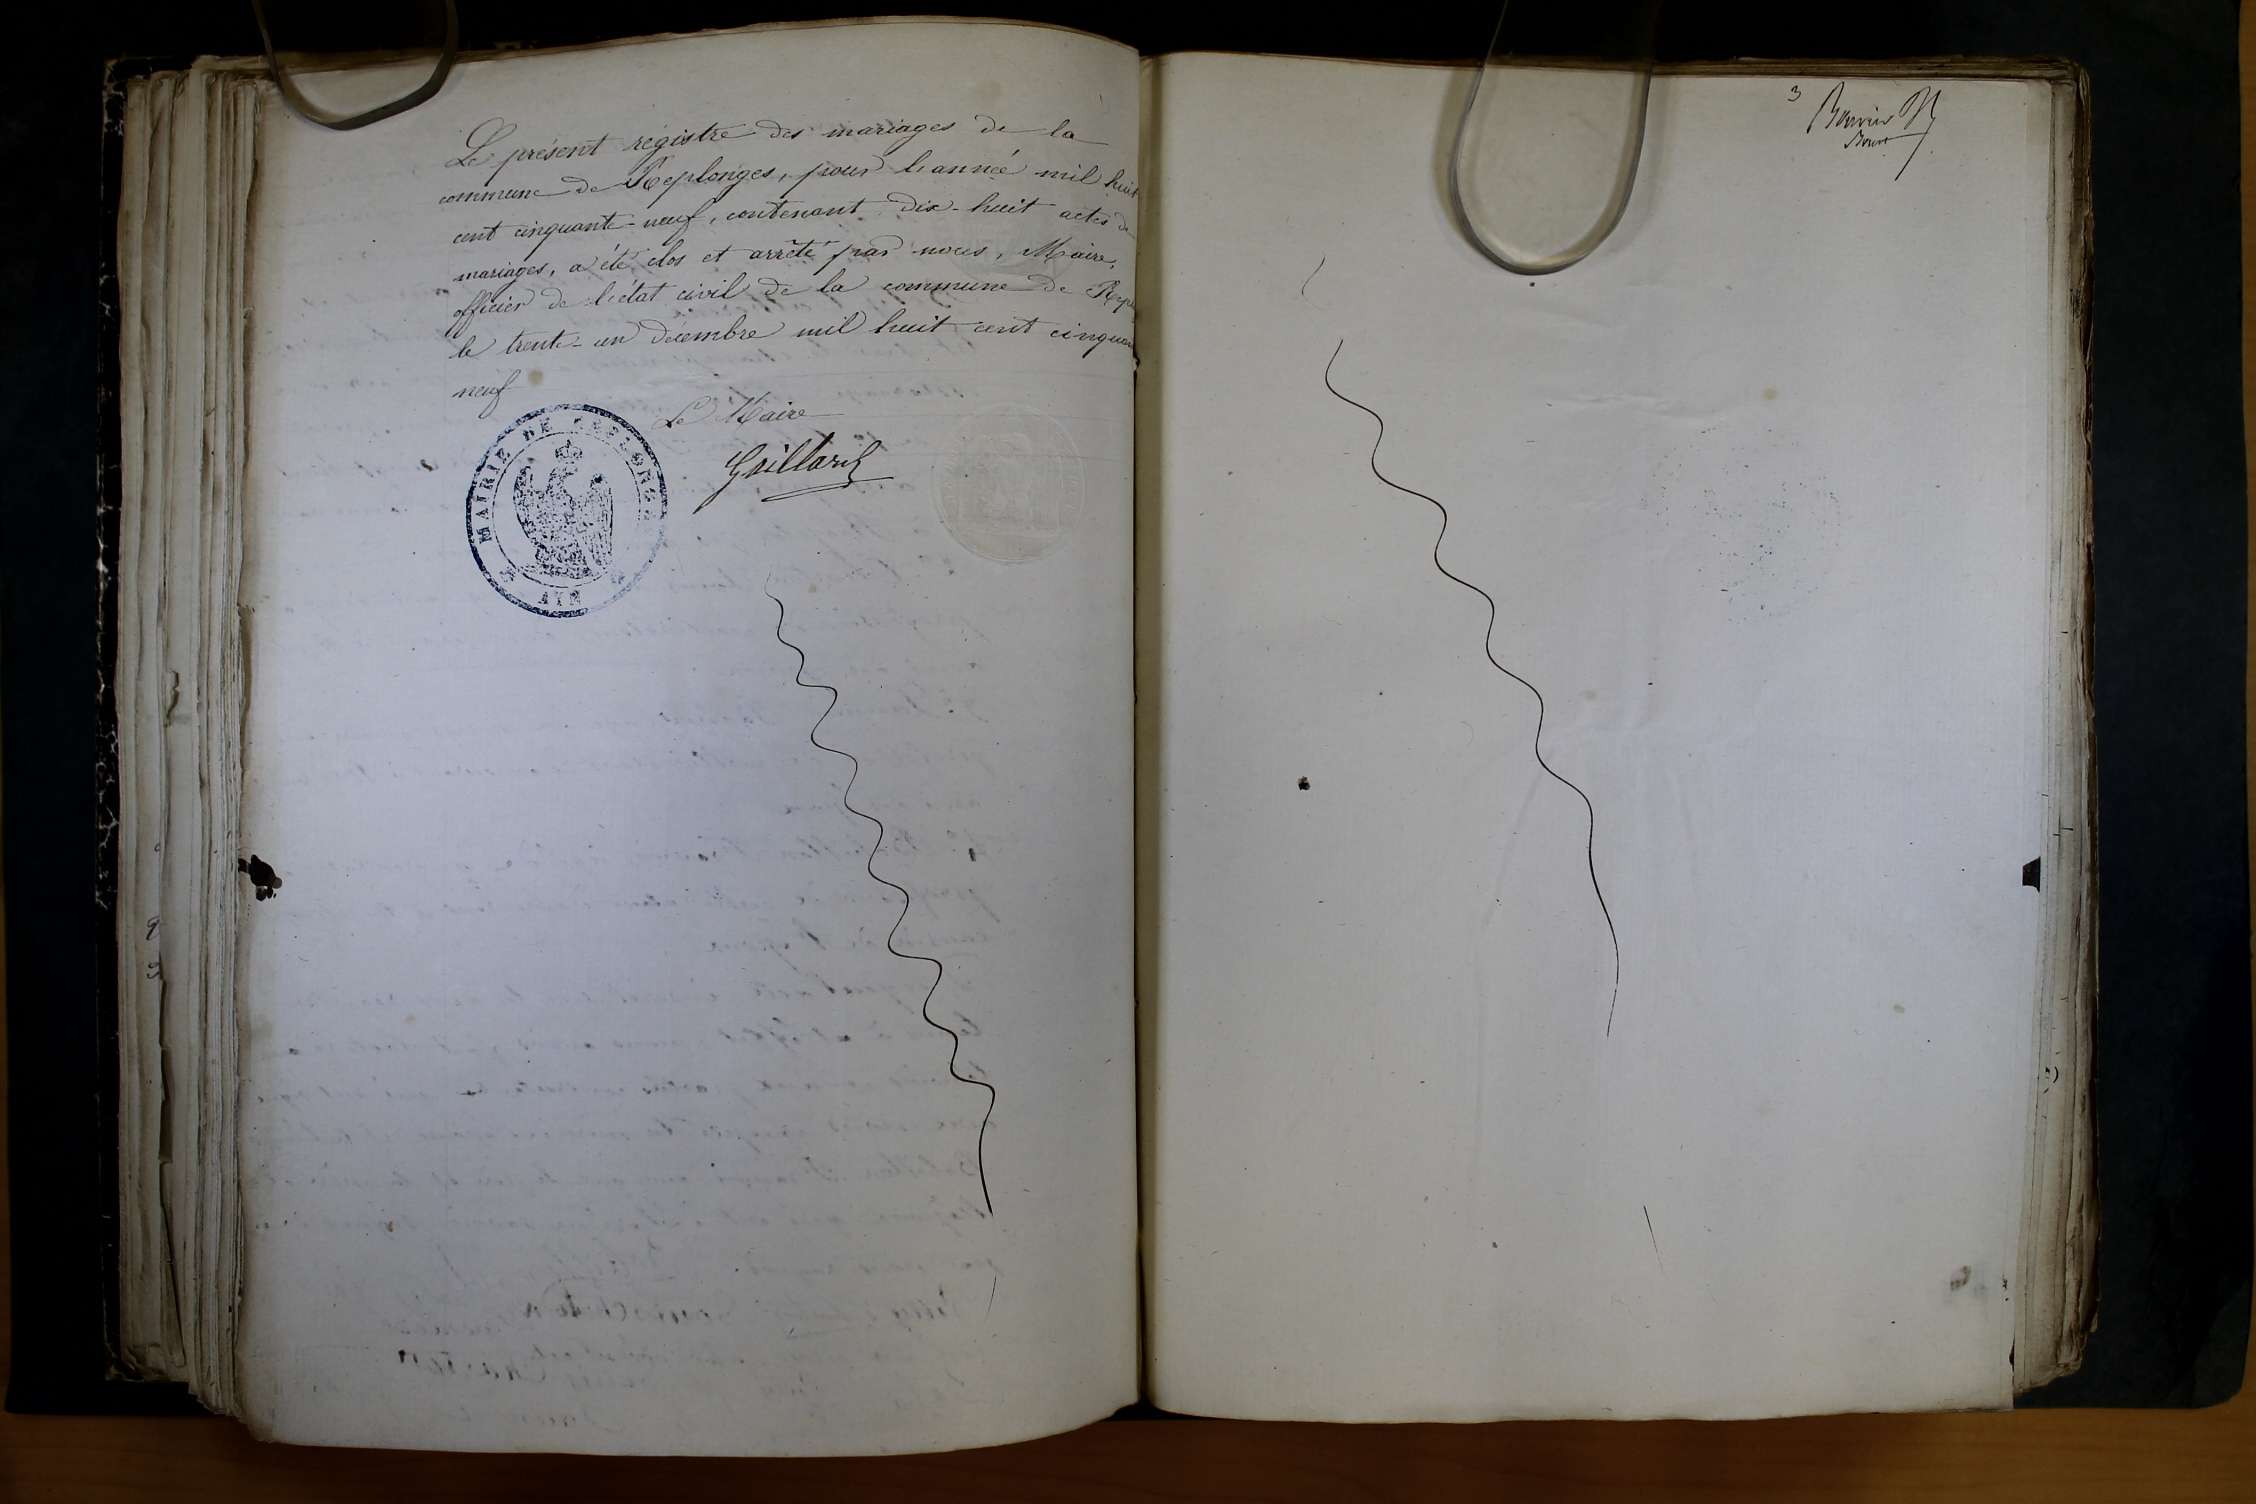 Le présent régistre des mariages de la
commune de Replonges, pour l'année mil huit
cent cinquante-neuf, contenant dix-huit actes de
mariages, a été clos et arrêté par nous, Maire,
officier de l'état civil de la commune de Repl
le trente-un décembre mil huit cent cinquan
neuf
Le Maire
Gaillard
MAIRIE DE REPLONGES
AIN
3